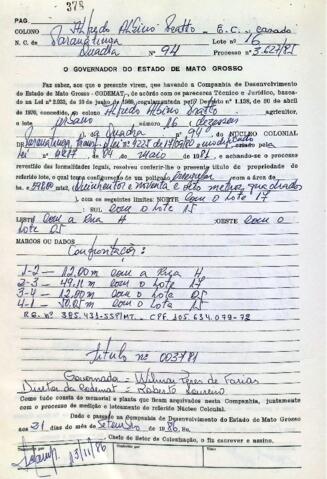 378
PAG.
COLONO Alfredo Albino Bratto E.C. casado
N. C. de Paranatinga Lote nº 16
Quadra Nº 94 Processo nº 3.627/85
O GOVERNADOR DO ESTADO DE MATO GROSSO
Faz saber, aos que a presente virem, que havendo a Companhia de Desenvolvimento
do Estado de Mato Grosso - CODEMAT, de acordo com os pareceres Técnico e Jurídico, baseados
na Lei nº 2.233, de 10 de junho de 1968, regulamentada pelo Decreto nº 1.138, de 30 de abril
de 1970, concedido ao colono Alfredo Albino Bratto agricultor,
o lote urbano número 16 dezesseis
da Quadra nº 94 NÚCLEO COLONIAL
de Paranatinga modificado pela
Lei nº de de maio de 1981, e achando-se o processo
revestido das formalidades legais, resolveu conferir-lhe o presente título de propriedade
do referido lote, o qual tem a configuração de um polígono irregular com a área de
metros quadrados
, com os seguintes limites: NORTE com o Lote 17
SUL com o Lote 15
LESTE com a Rua H OESTE com o
Lote 05
MARCOS OU DADOS
Confrontações:
1-2 - 12,00 m com a Rua H
2-3 - 49,11 m com o Lote 17
3-4 - 12,00 m com o Lote 05
4-1 - com o Lote 15
R.G. nº 385.433-SSP/MT. CPF. 105.634.079-72
Título nº 003781
Governador - Wilmar Peres de Farias
Diretor da Codemat = Roberto Loureiro
Como tudo consta do memorial e planta que ficaram arquivados nesta Companhia, juntamente
com o processo de medição e loteamento do referido Núcleo Colonial.
Passado na Companhia de Desenvolvimento do Estado de Mato Grosso
aos 31 dias do mês de Setembro de 1986. Eu,
Chefe do Setor de Colonização, o fiz escrever e assino.
13/11/86